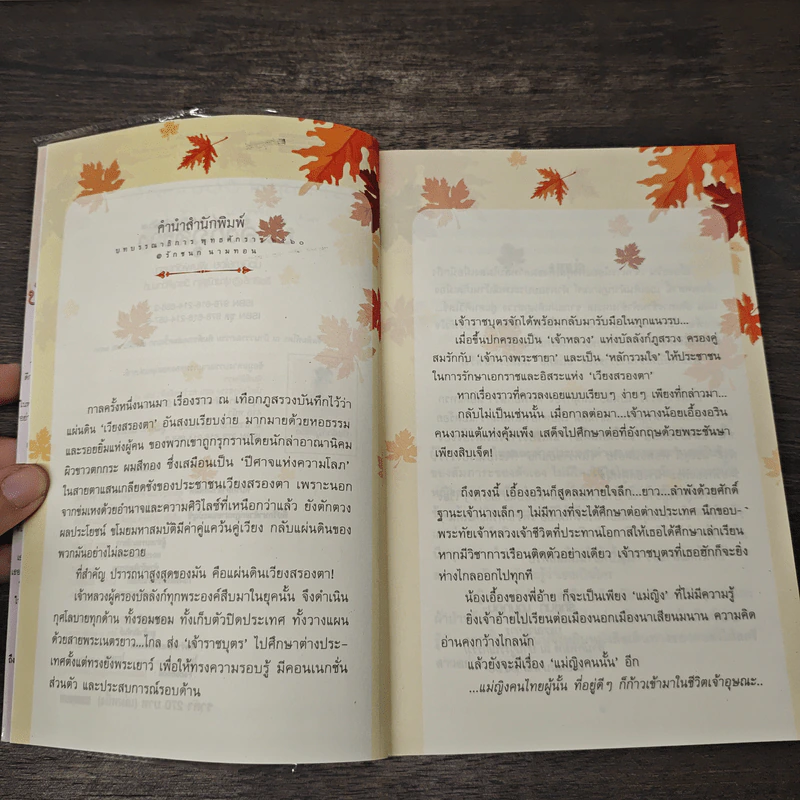 คำนำสำนักพิมพ์
บทบรรณาธิการ พุทธศักราช ๒๕๖๐
@รักชนก นามทอน
กาลครั้งหนึ่งนานมา เรื่องราว ณ เทือกภูสรวงบันทึกไว้ว่า
แผ่นดิน 'เวียงสรองตา' อันสงบเรียบง่าย มากมายด้วยหอธรรม
และรอยยิ้มแห่งผู้คน ของพวกเขาถูกรุกรานโดยนักล่าอาณานิคม
ผิวขาวตกกระ ผมสีทอง ซึ่งเสมือนเป็น 'ปีศาจแห่งความโลภ'
ในสายตาแสนเกลียดชังของประชาชนเวียงสรองตา เพราะนอก
จากข่มเหงด้วยอำนาจและความศิวิไลซ์ที่เหนือกว่าแล้ว ยังตักตวง
ผลประโยชน์ ขโมยมหาสมบัติมีค่าคู่แคว้นคู่เวียง กลับแผ่นดินของ
พวกมันอย่างไม่ละอาย
ที่สำคัญ ปรารถนาสูงสุดของมัน คือแผ่นดินเวียงสรองตา!
เจ้าหลวงผู้ครองบัลลังก์ทุกพระองค์สืบมาในยุคนั้น จึงดำเนิน
กุศโลบายทุกด้าน ทั้งรอมชอม ทั้งเก็บตัวปิดประเทศ ทั้งวางแผน
ด้วยสายพระเนตรยาว...ไกล ส่ง 'เจ้าราชบุตร' ไปศึกษาต่างประ-
เทศตั้งแต่ทรงยังพระเยาว์ เพื่อให้ทรงความรอบรู้ มีคอนเนกชั่น
ส่วนตัว และประสบการณ์รอบด้าน
เจ้าราชบุตรจักได้พร้อมกลับมารับมือในทุกแนวรบ...
เมื่อขึ้นปกครองเป็น 'เจ้าหลวง' แห่งบัลลังก์ภูสรวง ครองคู่
สมรักกับ 'เจ้านางพระชายา' และเป็น 'หลักรวมใจ' ให้ประชาชน
ในการรักษาเอกราชและอิสระแห่ง 'เวียงสรองตา'
หากเรื่องราวที่ควรลงเอยแบบเรียบๆ ง่ายๆ เพียงที่กล่าวมา...
กลับไม่เป็นเช่นนั้น เมื่อกาลต่อมา...เจ้านางน้อยเอื้องอริน
คนงามแต้แห่งคุ้มเพ็ง เสด็จไปศึกษาต่อที่อังกฤษด้วยพระชันษา
เพียงสิบเจ็ด!
ถึงตรงนี้ เอื้องอรินก็สูดลมหายใจลึก...ยาว...ลำพังด้วยศักดิ์
ฐานะเจ้านางเล็กๆ ไม่มีทางที่จะได้ศึกษาต่อต่างประเทศ นึกขอบ-
พระทัยเจ้าหลวงเจ้าชีวิตที่ประทานโอกาสให้เธอได้ศึกษาเล่าเรียน
หากมีวิชาการเรือนติดตัวอย่างเดียว เจ้าราชบุตรที่เธอฮักก็จะยิ่ง
ห่างไกลออกไปทุกที
น้องเอื้องของพี่อ้าย ก็จะเป็นเพียง 'แม่ญิง' ที่ไม่มีความรู้
ยิ่งเจ้าอ้ายไปเรียนต่อเมืองนอกเมืองนาเสียนมนาน ความคิด
อ่านคงกว้างไกลนัก
แล้วยังจะมีเรื่อง 'แม่ญิงคนนั้น' อีก
...แม่ญิงคนไทยผู้นั้น ที่อยู่ดีๆ ก็ก้าวเข้ามาในชีวิตเจ้าอุษณะ..